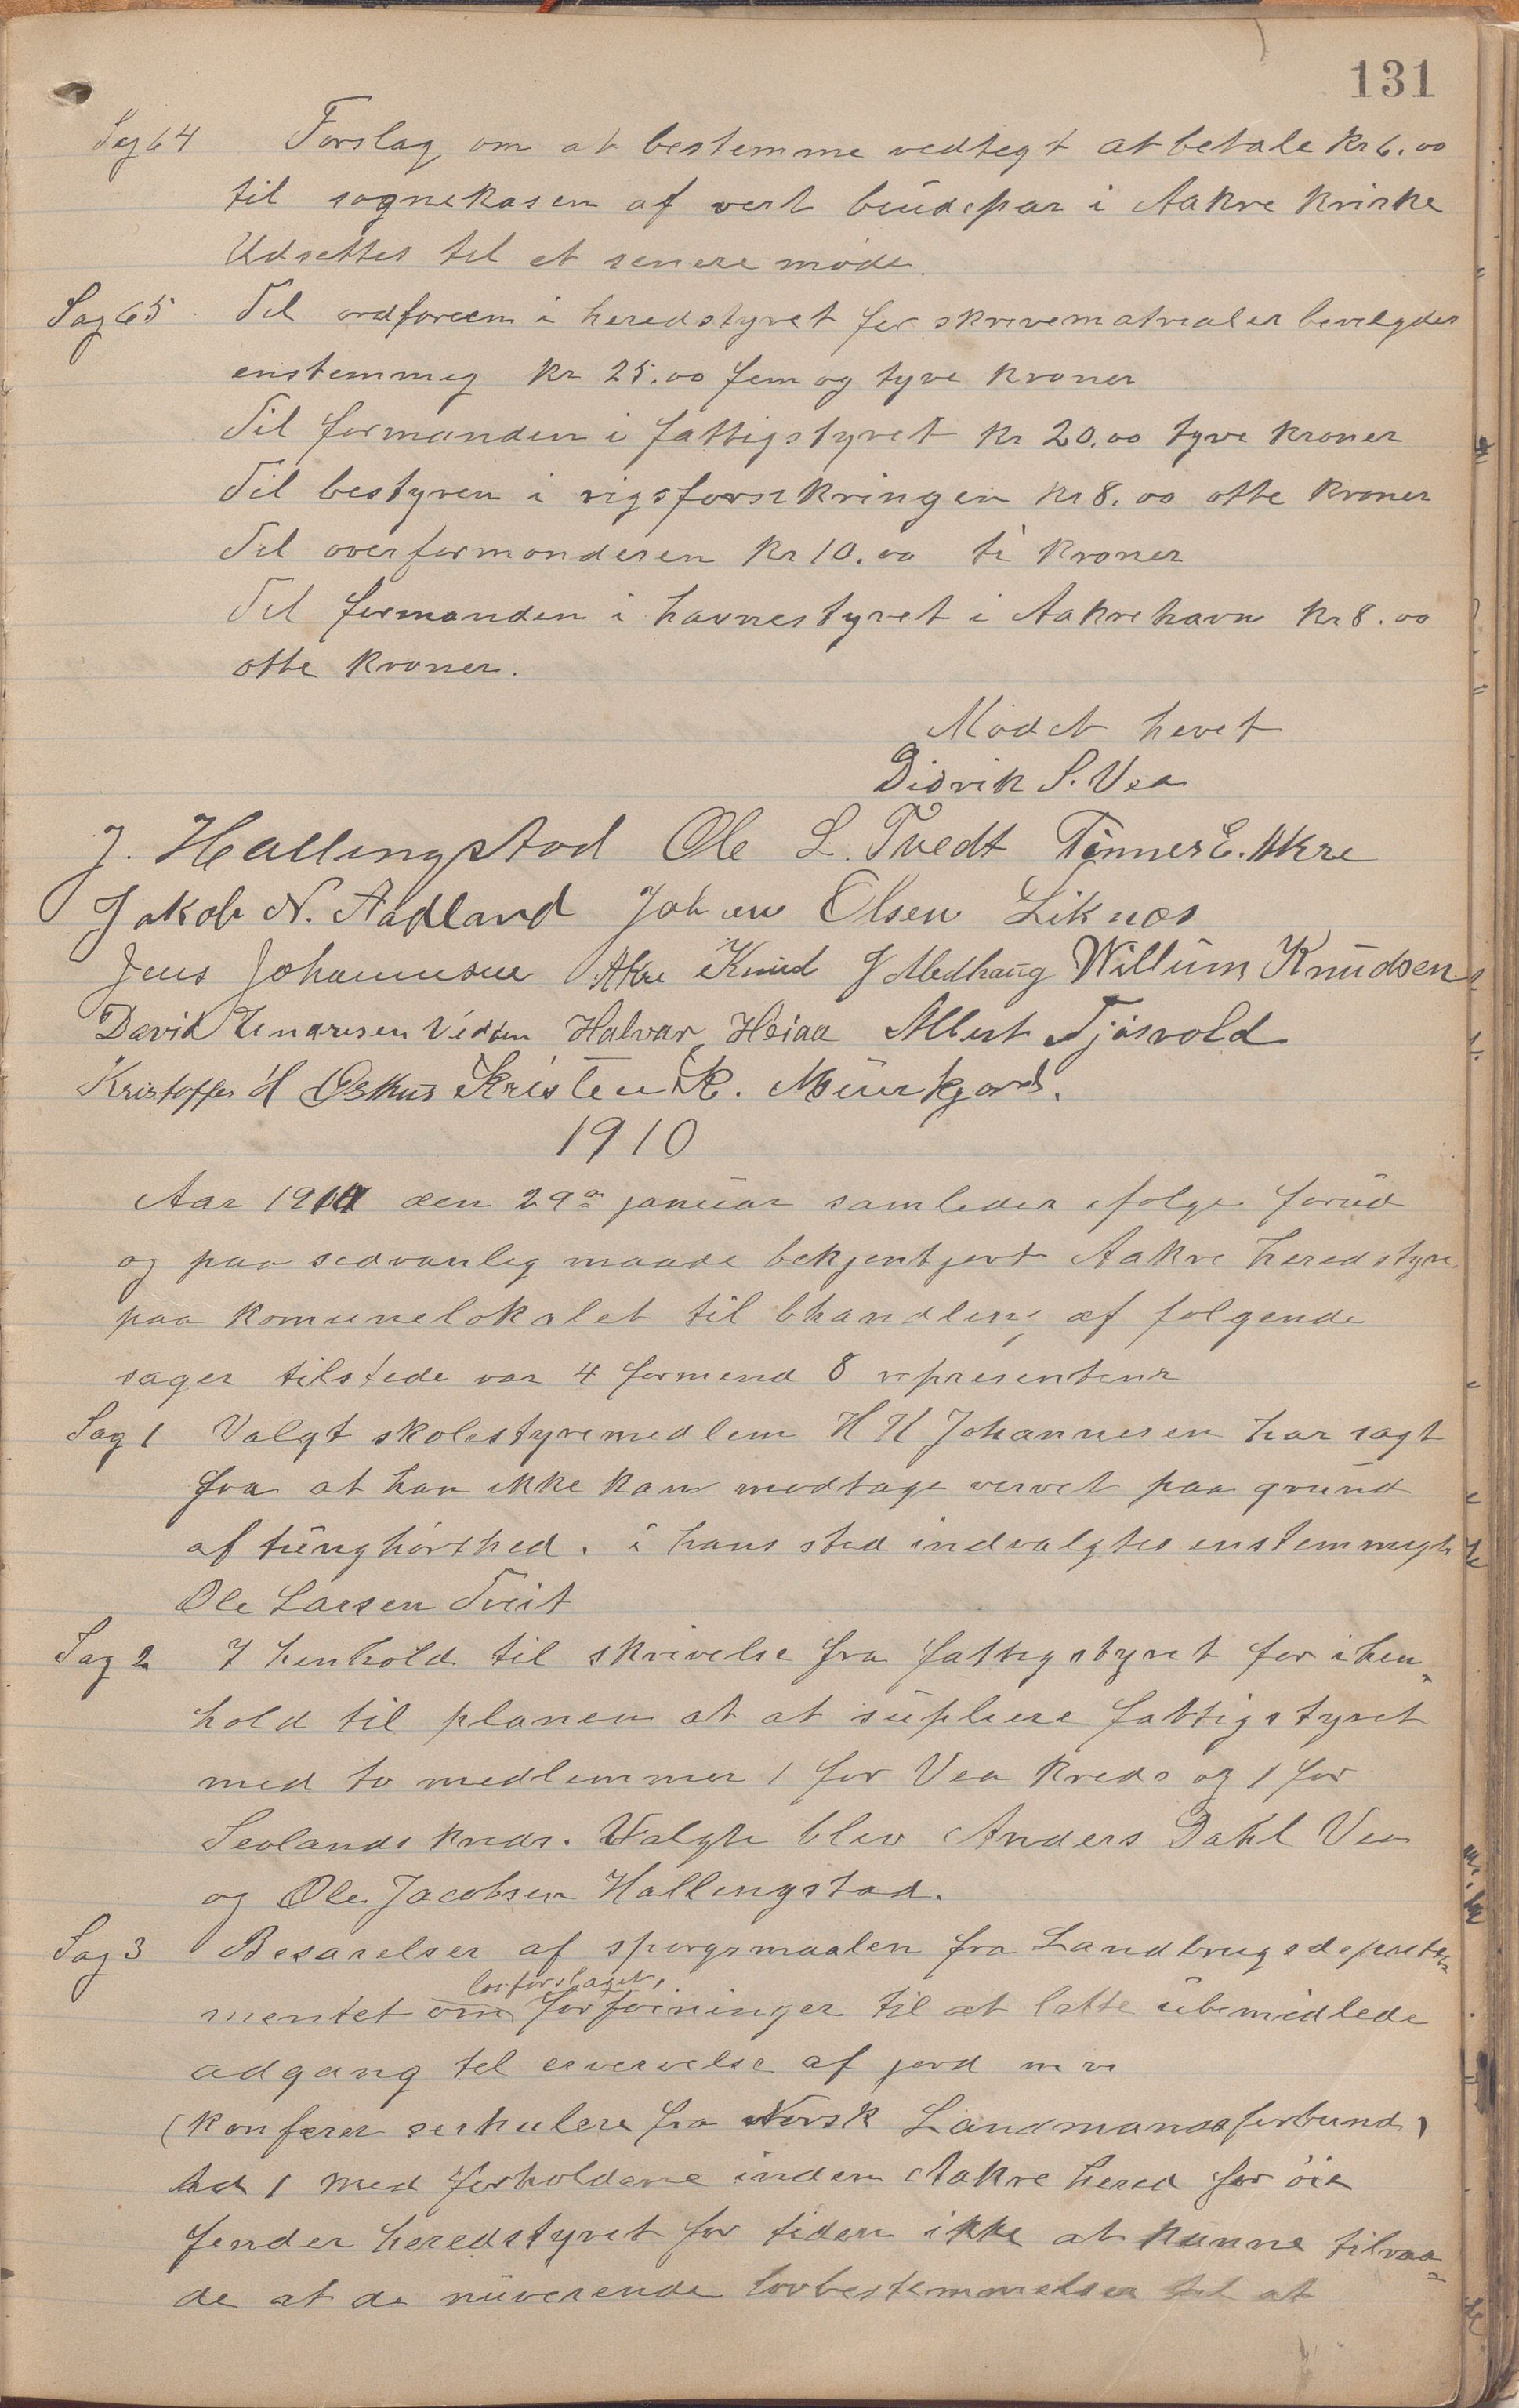 131
Sag 64 Forslag om at bestemme vedtegt at betale kr 6.00
til sognekasen af vert brudepar i Aakre kvirke
Udsettes til et senere møde.
Sag 65 Til ordføreren i heredstyret for skrivematrealer bevilgdes
enstemmig kr 25.00 fem og tyve kroner
Til formanden i fattigstyret kr 20.00 tyve kroner
Til bestyren i rigsforsekringen kr 8.00 otte kroner
Til overformonderen kr 10.00 ti kroner
Til formanden i havnestyret i Aakrehavn kr 8.00
otte kroner.
Mødet hevet
Didrik S. Vea
J. Hallingstad Ole L. Tvedt Tønnes E. Akre
Jakob N. Aadland Johan Olsen Liknes
Jens Johannesen Akre Knud J Medhaug Willum Knudsen
David Enaresen Vedøen Halvar Heiaa Albert Tjøsvold
Kristoffer H Østhus Kristen K. Munkjord.
1910
Aar 1910 den 29de januar samledes ifølge forud
og paa sedvanlig maade bekjentjort Aakre heredstyre
paa komunelokalet til bhandling af følgende
sager tilstede var 4 formend 8 represententer
Sag 1 Valgt skolestyremedlem H H Johannesen har sagt
fra at han ikke kan modtage vervet paa grund
af tunghørthed. i hans sted indvalgtes enstemmigt
Ole Larsen Tveit
Sag 2 I henhold til skrivelse fra fattigstyret for i hen-
hold til planen at at supleere fattigstyret
med to medlemmer 1 for Vea kreds og 1 for
Sevlands kreds. Valgte blev Anders Dahl Vea
og Ole Jacobsen Hallingstad.
Sag 3 Besarelser af spørgsmaalen fra Landbrugsdeparte-
lovforslaget,
mentet om forføininger til at lette ubemidlede
adgang til ervervelse af jord m v
(konferer serkulere fra Norsk Landmandsforbund)
Ad 1 Med forholdene inden Aakre hered for øie
finder heredstyret for tiden ikke at kunne tilraa-
de at de nuverende lovbestemmelser til at